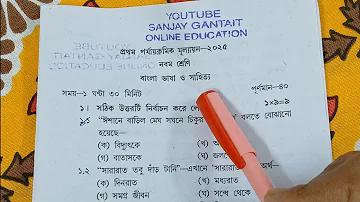 YOUTUBE
SANJAY GANTAIT
ONLINE EDUCATION
প্রথম পর্যায়ক্রমিক মূল্যায়ন—২০২৫
নবম শ্রেণি
বাংলা ভাষা ও সাহিত্য
সময়—১ ঘণ্টা ৩০ মিনিট পূর্ণমান—৪০
১। সঠিক উত্তরটি নির্বাচন করে ১×৯=৯
"ঈশানে বাড়িল মেঘ সঘনে চিকুর বলতে বোঝানো
হয়েছে—
(ক) বিদ্যুৎকে (খ)
(গ) বাতাসকে (ঘ)
১.২ "সারারাত তবু দাঁড় টানি"—এখানে অর্থ—
(ক) দিনরাত (খ) মধ্যরাত
(গ) সমগ্র জীবন (ঘ) সন্ধে থেকে